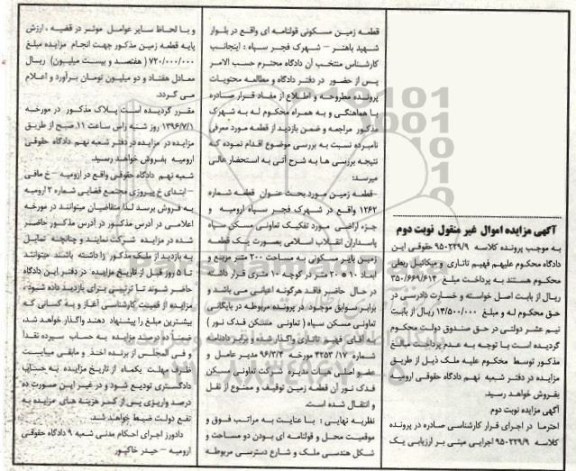 آگهی مزایده اموال غیر منقول نوبت دوم
به موجب پرونده کلاسه ۹۵۰۲۲۹/۹ حقوقی این
دادگاه محکوم علیهم فهیم تاتاری و میکائیل ربعلی
محکوم هستند به پرداخت مبلغ ۳۵۰/۶۶۹/۶۱۲
ریال از بابت اصل خواسته و خسارت دادرسی در
حق محکوم له و مبلغ ۱۳/۵۰۰/۰۰۰ ریال از بابت
نیم عشر دولتی در حق صندوق دولت محکوم
گردیده است با توجه به عدم پرداخت مبالغ
مذکور توسط محکوم علیه ملک ذیل از طریق
مزایده در دفتر شعبه نهم دادگاه حقوقی ارومیه
بفروش خواهد رسید.
آگهی مزایده نوبت دوم
احترما در اجرای قرار کارشناسی صادره در پرونده
کلاسه ۹۵۰۲۲۹/۹ اجرایی مبنی بر ارزیابی یک
قطعه زمین مسکونی قولنامه ای واقع در بلوار
شهید باهنر – شهرک فجر سپاه : اینجانب
کارشناس منتخب آن دادگاه محترم حسب الامر
پس از حضور در دفتر دادگاه و مطالعه محتویات
پرونده مطروحه و اطلاع از مفاد قرار صادره
با هماهنگی و به همراه محکوم له به شهرک
مذکور مراجعه و ضمن بازدید از قطعه مورد معرفی
نامبرده نسبت به بررسی موضوع اقدام نموده که
نتیجه بررسی ها به شرح آتی به استحضار عالی
میرسد:
–قطعه زمین مورد بحث عنوان قطعه شماره
۱۲۶۲ واقع در شهرک فجر سپاه ارومیه و
جزء اراضی مورد تفکیک تعاونی مسکن سپاه
پاسداران انقلاب اسلامی بصورت یک قطعه
زمین بایر مسکونی به مساحت ۲۰۰ متر مربع و
ابعاد ۱۰ * ۲۰ متر در کوچه ۱۰ متری قرار داشته
در حال حاضر فاقد هرگونه اعیانی می باشد و
برابر سوابق موجود در پرونده مربوطه در بایگانی
تعاونی مسکن سپاه ( تعاونی متشکن فدک نور )
به آقای فهیم تاتاری واگذار شده و برگه دادنامه
شماره ۴۲۵۳/۱۷ مورخه ۹۶/۲/۴ مدیر عامل و
عضو اصلی هیات مدیره شرکت تعاونی مسکن
فدک نور آن قطعه زمین توقیف و ممنوع از نقل
و انتقال شده است.
نظریه نهایی : با عنایت به مراتب فوق و
موقعیت محل و قولنامه ای بودن دو مساحت و
شکل هندسی ملک و شارع دسترسی مربوطه
و با لحاظ سایر عوامل موثر در قضیه ، ارزش
پایه قطعه زمین مذکور جهت انجام مزایده مبلغ
۷۲۰/۰۰۰/۰۰۰ ( هفتصد و بیست میلیون) ریال
معادل هفتاد و دو میلیون تومان برآورد و اعلام
می گردد.
مقرر گردیده است پلاک مذکور در مورخه
۱۳۹۶/۷/۱ روز شنبه راس ساعت ۱۱ صبح از طریق
مزایده در مزایده در دفتر شعبه نهم دادگاه حقوقی
ارومیه بفروش خواهد رسید.
شعبه نهم دادگاه حقوقی واقع در ارومیه – خ مافی
– ابتدای خ پیروزی مجتمع قضایی شماره ۲ ارومیه
به فروش برسد لذا متقاضیان میتوانند در مورخه
اعلامی در آدرس مذکور در آدرس مذکور حاضر
شده در مزایده شرکت نمایند و چنانچه تمایل
به بازدید از ملک مذکور را داشته باشند میتوانند
تا ۵ روز قبل از تاریخ مزایده در دفتر این دادگاه
حاضر شوند تا ترتیبی برای بازدید داده شود،
مزایده از قیمت کارشناسی آغاز و به کسانی که
بیشترین مبلغ را پیشنهاد دهند واگذار خواهد شد،
ضمنا ده درصد مزایده به حساب سپرده نقدا
و فی المجلس از برنده اخذ و مابقی میبایست
ظرف مهلت یکماه از تاریخ مزایده به حساب
دادگستری تودیع شود و در غیر این صورت ده
درصد واریزی پس از کسر هزینه های مزایده به
نفع دولت ضبط خواهد شد.
دادورز اجرای احکام مدنی شعبه ۹ دادگاه حقوقی
ارومیه – حیدر خاکپور